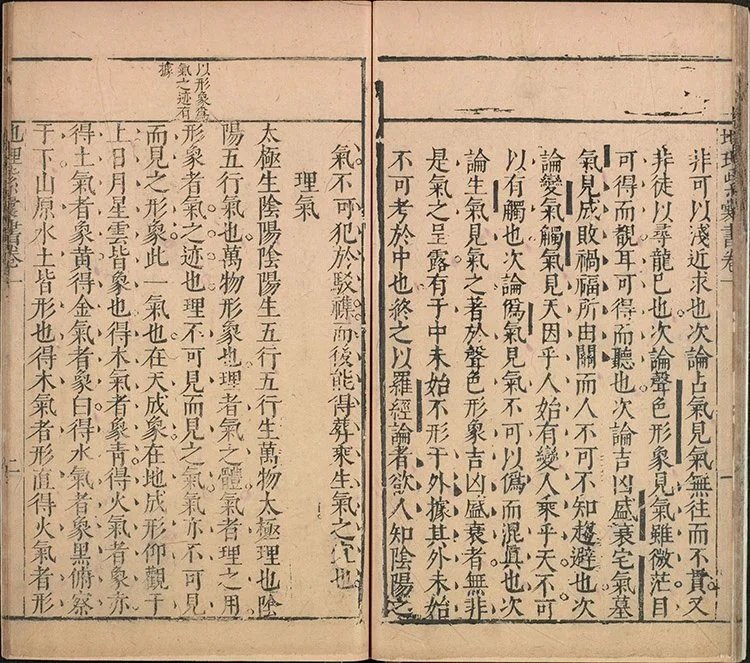 地理紫囊書卷一
一
非可以淺近求也次論占氣見氣無往而不貫又
非徒以尋龍巳也次論聲色形象見氣雖微茫目
可得而覩耳可得而聽也次論吉凶盛衰宅氣墓
氣見成敗禍福所由關而人不可不知趨避也次
論變氣觸氣見天因乎人始有變人乘乎天不可
以有觸也次論僞氣見氣不可以僞而混眞也次
論生氣見氣之著於聲色形象吉凶盛衰者無非
是氣之呈露有于中未始不形于外據其外未始
不可考於中也終之以羅經論者欲人知陰陽之
氣不可犯於駁襍而後能得葬乘生氣之宜也
理氣
太極生陰陽陰陽生五行五行生萬物太極理也陰
陽五行氣也萬物形象也理者氣之體氣者理之用
以形象爲
氣之迹有
據
形象者氣之迹也理不可見而見之氣氣亦不可見
而見之形象此一氣也在天成象在地成形仰觀于
上日月星雲皆象也得木氣者象青得火氣者象赤
得土氣者象黃得金氣者象白得水氣者象黑俯察
于下山原水土皆形也得木氣者形直得火氣者形
地理紫囊書卷一
二